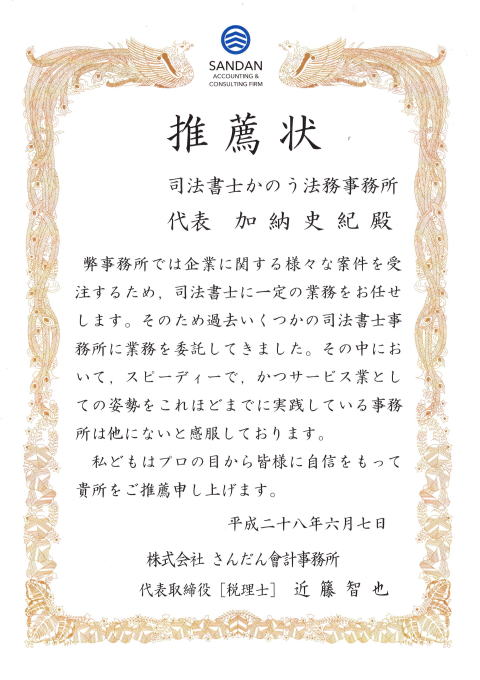 SANDAN
ACCOUNTING &
CONSULTING FIRM
推薦状
司法書士かのう法務事務所
代表 加納史紀殿
弊事務所では企業に関する様々な案件を受
注するため，司法書士に一定の業務をお任せ
します。そのため過去いくつかの司法書士事
務所に業務を委託してきました。その中にお
いて，スピーディーで，かつサービス業とし
ての姿勢をこれほどまでに実践している事務
所は他にないと感服しております。
私どもはプロの目から皆様に自信をもって
貴所をご推薦申し上げます。
平成二十八年六月七日
株式会社 さんだん會計事務所
代表取締役［税理士］ 近藤智也